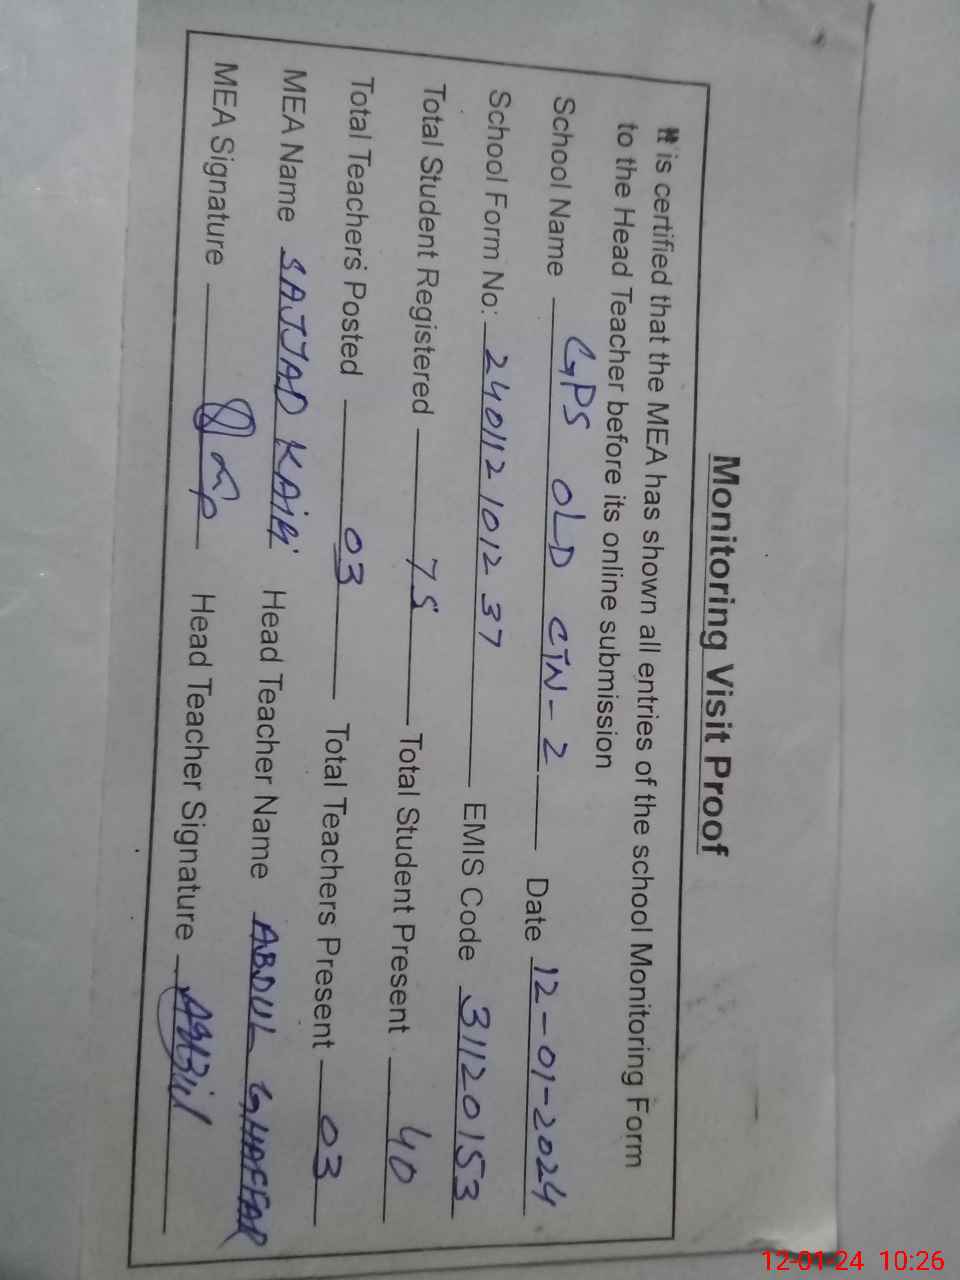 Monitoring Visit Proof
It is certified that the MEA has shown all entries of the school Monitoring Form
to the Head Teacher before its online submission
School Name GPS OLD CTN-2 Date 12-01-2024
School Form No: 24011210 12 37 EMIS Code 31120153
Total Student Registered 75 Total Student Present 40
Total Teachers Posted 03 Total Teachers Present 03
MEA Name SAJJAD Head Teacher Name ABDUL GHAFFAR
MEA Signature Head Teacher Signature
12-01-24 10:26